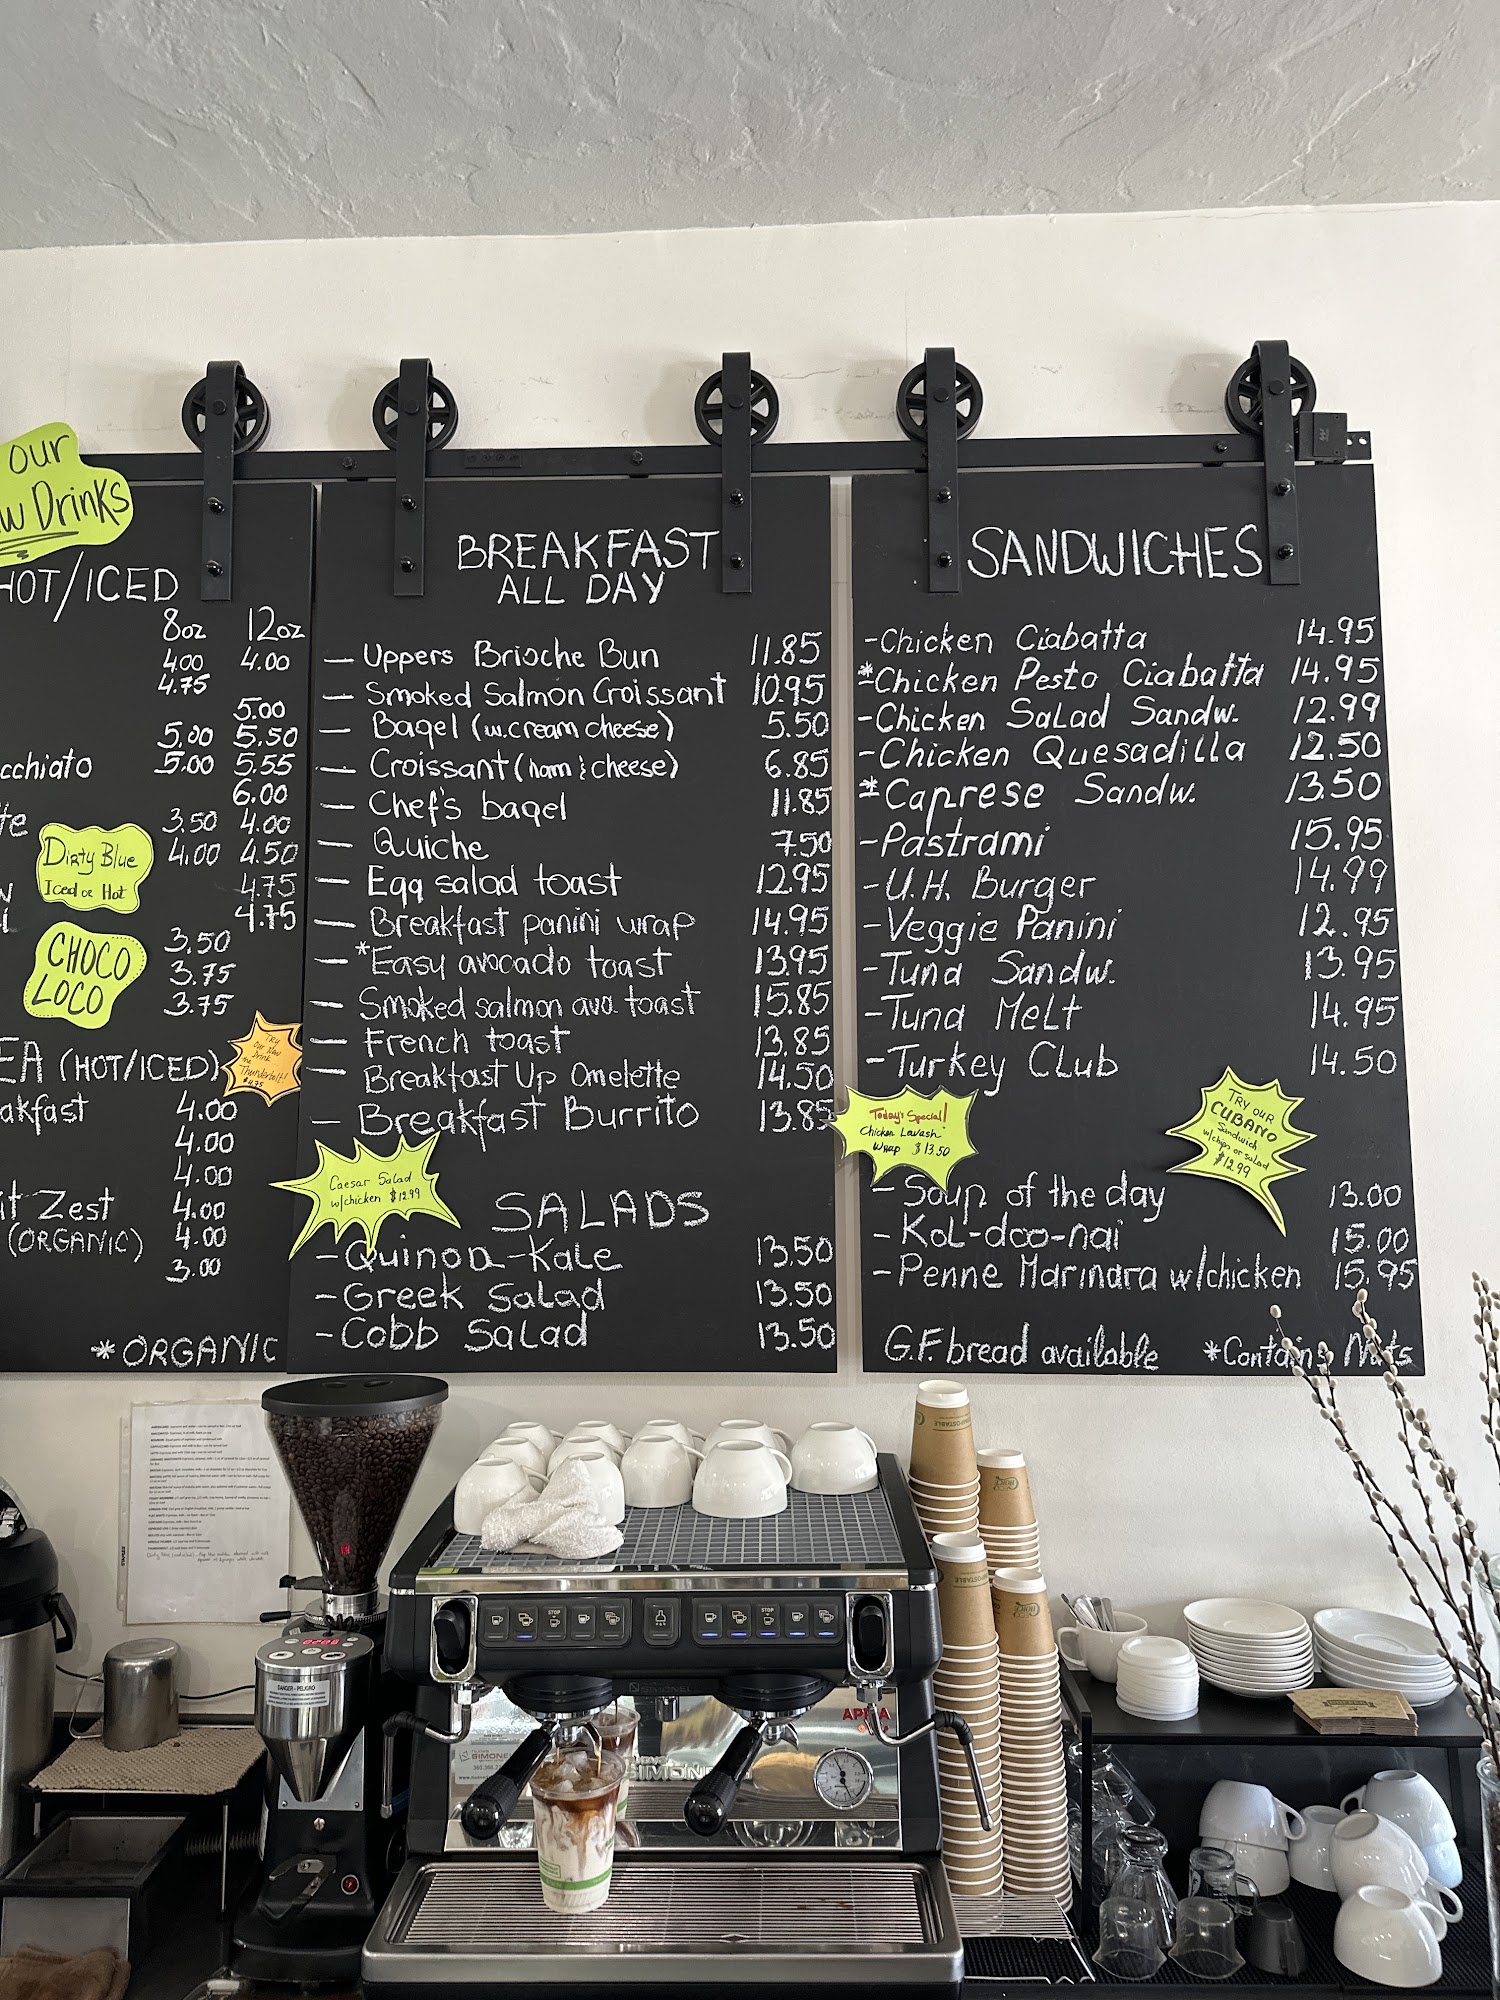 our
Drinks
HOT/ICED
8oz 12oz
4.00 4.00
4.75
5.00
5.00 5.50
cchiato 5.00 5.55
6.00
te 3.50 4.00
Dirty Blue
Iced or Hot
4.00 4.50
4.75
4.75
CHOCO
LOCO
3.50
3.75
3.75
EA (HOT/ICED)
Try
Our New
Drink
the
Thunderbolt!
$4.75
akfast 4.00
4.00
4.00
it Zest 4.00
(ORGANIC) 4.00
3.00
*ORGANIC
BREAKFAST
ALL DAY
— Uppers Brioche Bun 11.85
— Smoked Salmon Croissant 10.95
— Bagel (w. cream cheese) 5.50
— Croissant (ham & cheese) 6.85
— Chef's bagel 11.85
— Quiche 7.50
— Egg salad toast 12.95
— Breakfast panini wrap 14.95
— *Easy avocado toast 13.95
— Smoked salmon avo toast 15.85
— French toast 13.85
— Breakfast Up Omelette 14.50
— Breakfast Burrito 13.85
Caesar Salad
w/chicken $12.99
SALADS
- Quinoa-Kale 13.50
- Greek Salad 13.50
- Cobb Salad 13.50
SANDWICHES
- Chicken Ciabatta 14.95
*- Chicken Pesto Ciabatta 14.95
- Chicken Salad Sandw. 12.99
- Chicken Quesadilla 12.50
*- Caprese Sandw. 13.50
- Pastrami 15.95
- U.H. Burger 14.99
- Veggie Panini 12.95
- Tuna Sandw. 13.95
- Tuna Melt 14.95
- Turkey Club 14.50
Today's Special!
Chicken Lavash
Wrap $13.50
TRY OUR
CUBANO
Sandwich
w/chips or salad
$12.99
- Soup of the day 13.00
- Kol-doo-nai 15.00
- Penne Marinara w/chicken 15.95
G.F. bread available *Contains Nuts
STOP
STOP
DANGER - PELIGRO
SIMONELLI